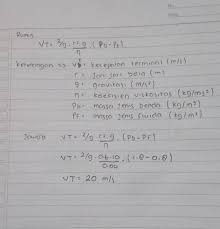 Rumus
VT = 2/9 . r². g . (Pb - Pf)
η
Keterangan => VT = kecepatan terminal (m/s)
r = Jari-jari bola (m)
g = gravitasi (m/s²)
η = koefisien viskositas (kg/ms²)
Pb = massa jenis benda (kg/m³)
Pf = massa jenis fluida (kg/m³)
Jawab
VT = 2/9 . r². g . (Pb - Pf)
η
VT = 2/9 . 06.10 . (1.0 - 0.8)
0.00
VT = 20 m/s